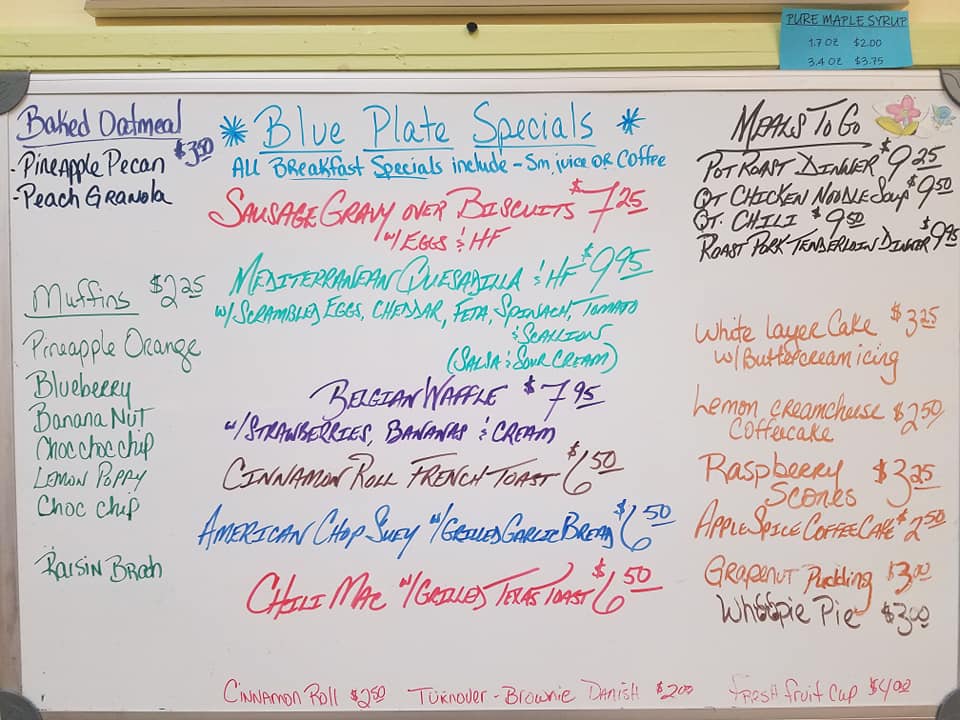 PURE MAPLE SYRUP
1.7 OZ $2.00
3.4 OZ $3.75
Baked Oatmeal
$3.50
- Pineapple Pecan
- Peach Granola
Muffins $2.25
Pineapple Orange
Blueberry
Banana Nut
Choc choc chip
Lemon Poppy
Choc chip
Raisin Bran
* Blue Plate Specials *
All Breakfast Specials include - Sm. juice OR Coffee
Sausage Gravy over Biscuits $7.25
w/ Eggs & HF
Mediterranean Quesadilla & HF $9.95
w/ Scrambled Eggs, Cheddar, Feta, Spinach, Tomato
& Scallion
(Salsa & Sour Cream)
Belgian Waffle $7.95
w/ Strawberries, Bananas & Cream
Cinnamon Roll French Toast $6.50
American Chop Suey w/ Grilled Garlic Bread $6.50
Chili Mac w/ Grilled Texas Toast $6.50
Meals To Go
Pot Roast Dinner $9.25
Qt Chicken Noodle Soup $9.50
Qt. Chili $9.50
Roast Pork Tenderloin Dinner $9.95
White Layer Cake $3.25
w/ Buttercream icing
Lemon creamcheese $2.50
Coffeecake
Raspberry $3.25
Scones
Apple Spice Coffee Cake $2.50
Grapenut Pudding $3.00
Whoopie Pie $3.00
Cinnamon Roll $2.50 Turnover - Brownie Danish $2.00 fresh fruit cup $4.00